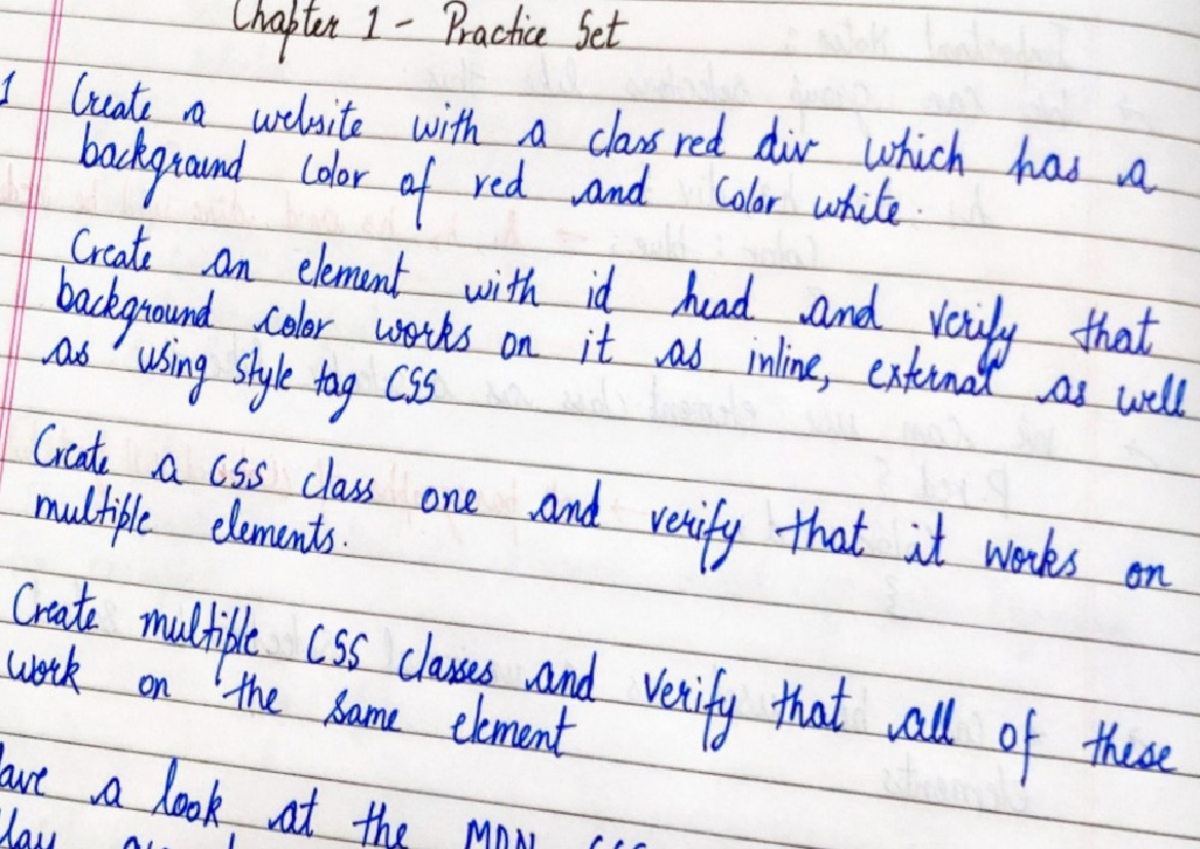 Chapter 1 - Practice Set
1 Create a website with a class red div which has a
background color of red and Color white.
Create an element with id head and verify that
background color works on it as inline, external as well
as using style tag CSS
Create a CSS class one and verify that it works on
multiple elements.
Create multiple CSS classes and verify that all of these
work on the same element
ave a look at the MDN CSS